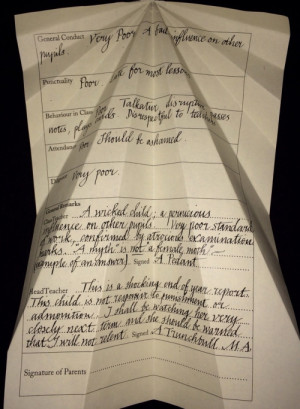 General Conduct Very Poor. A bad influence on other
pupils.
Punctuality Poor. for most lessons
Behaviour in Class Talkative, disruptive,
notes, Disrespectful to
Attendance Should be ashamed.
Very poor.
Remarks
A wicked child; a pernicious
influence on other pupils. Very poor standard
of work, confirmed by atrocious examination
marks. "A myth is not a female moth"
(example of an answer) Signed A. Pedant.
Head Teacher This is a shocking end of year report.
This child is not responsive to punishment or
admonition. I shall be watching her very
closely next term and she should be warned
that I will not relent. Signed A Trunchbull. M.A.
Signature of Parents